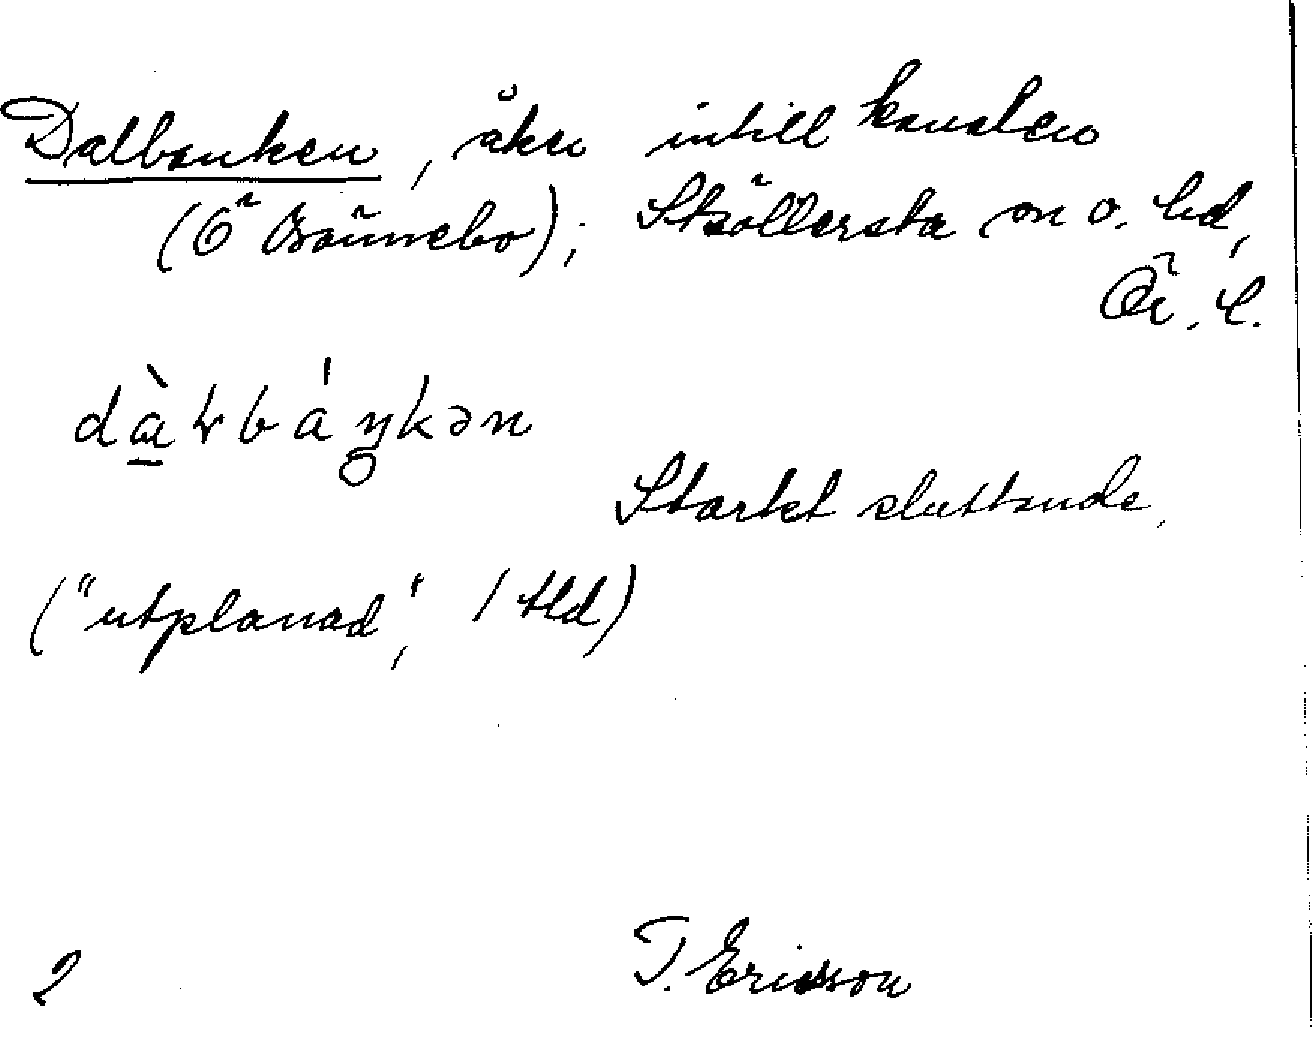 Dalbanken, åker intill kanalen
(Ö Brännebo); Sköllersta sn o. hd,
Ör. l.
dàłbáŋkən
Starkt sluttande,
("utplanad", 1 tld)
2 T. Ericsson